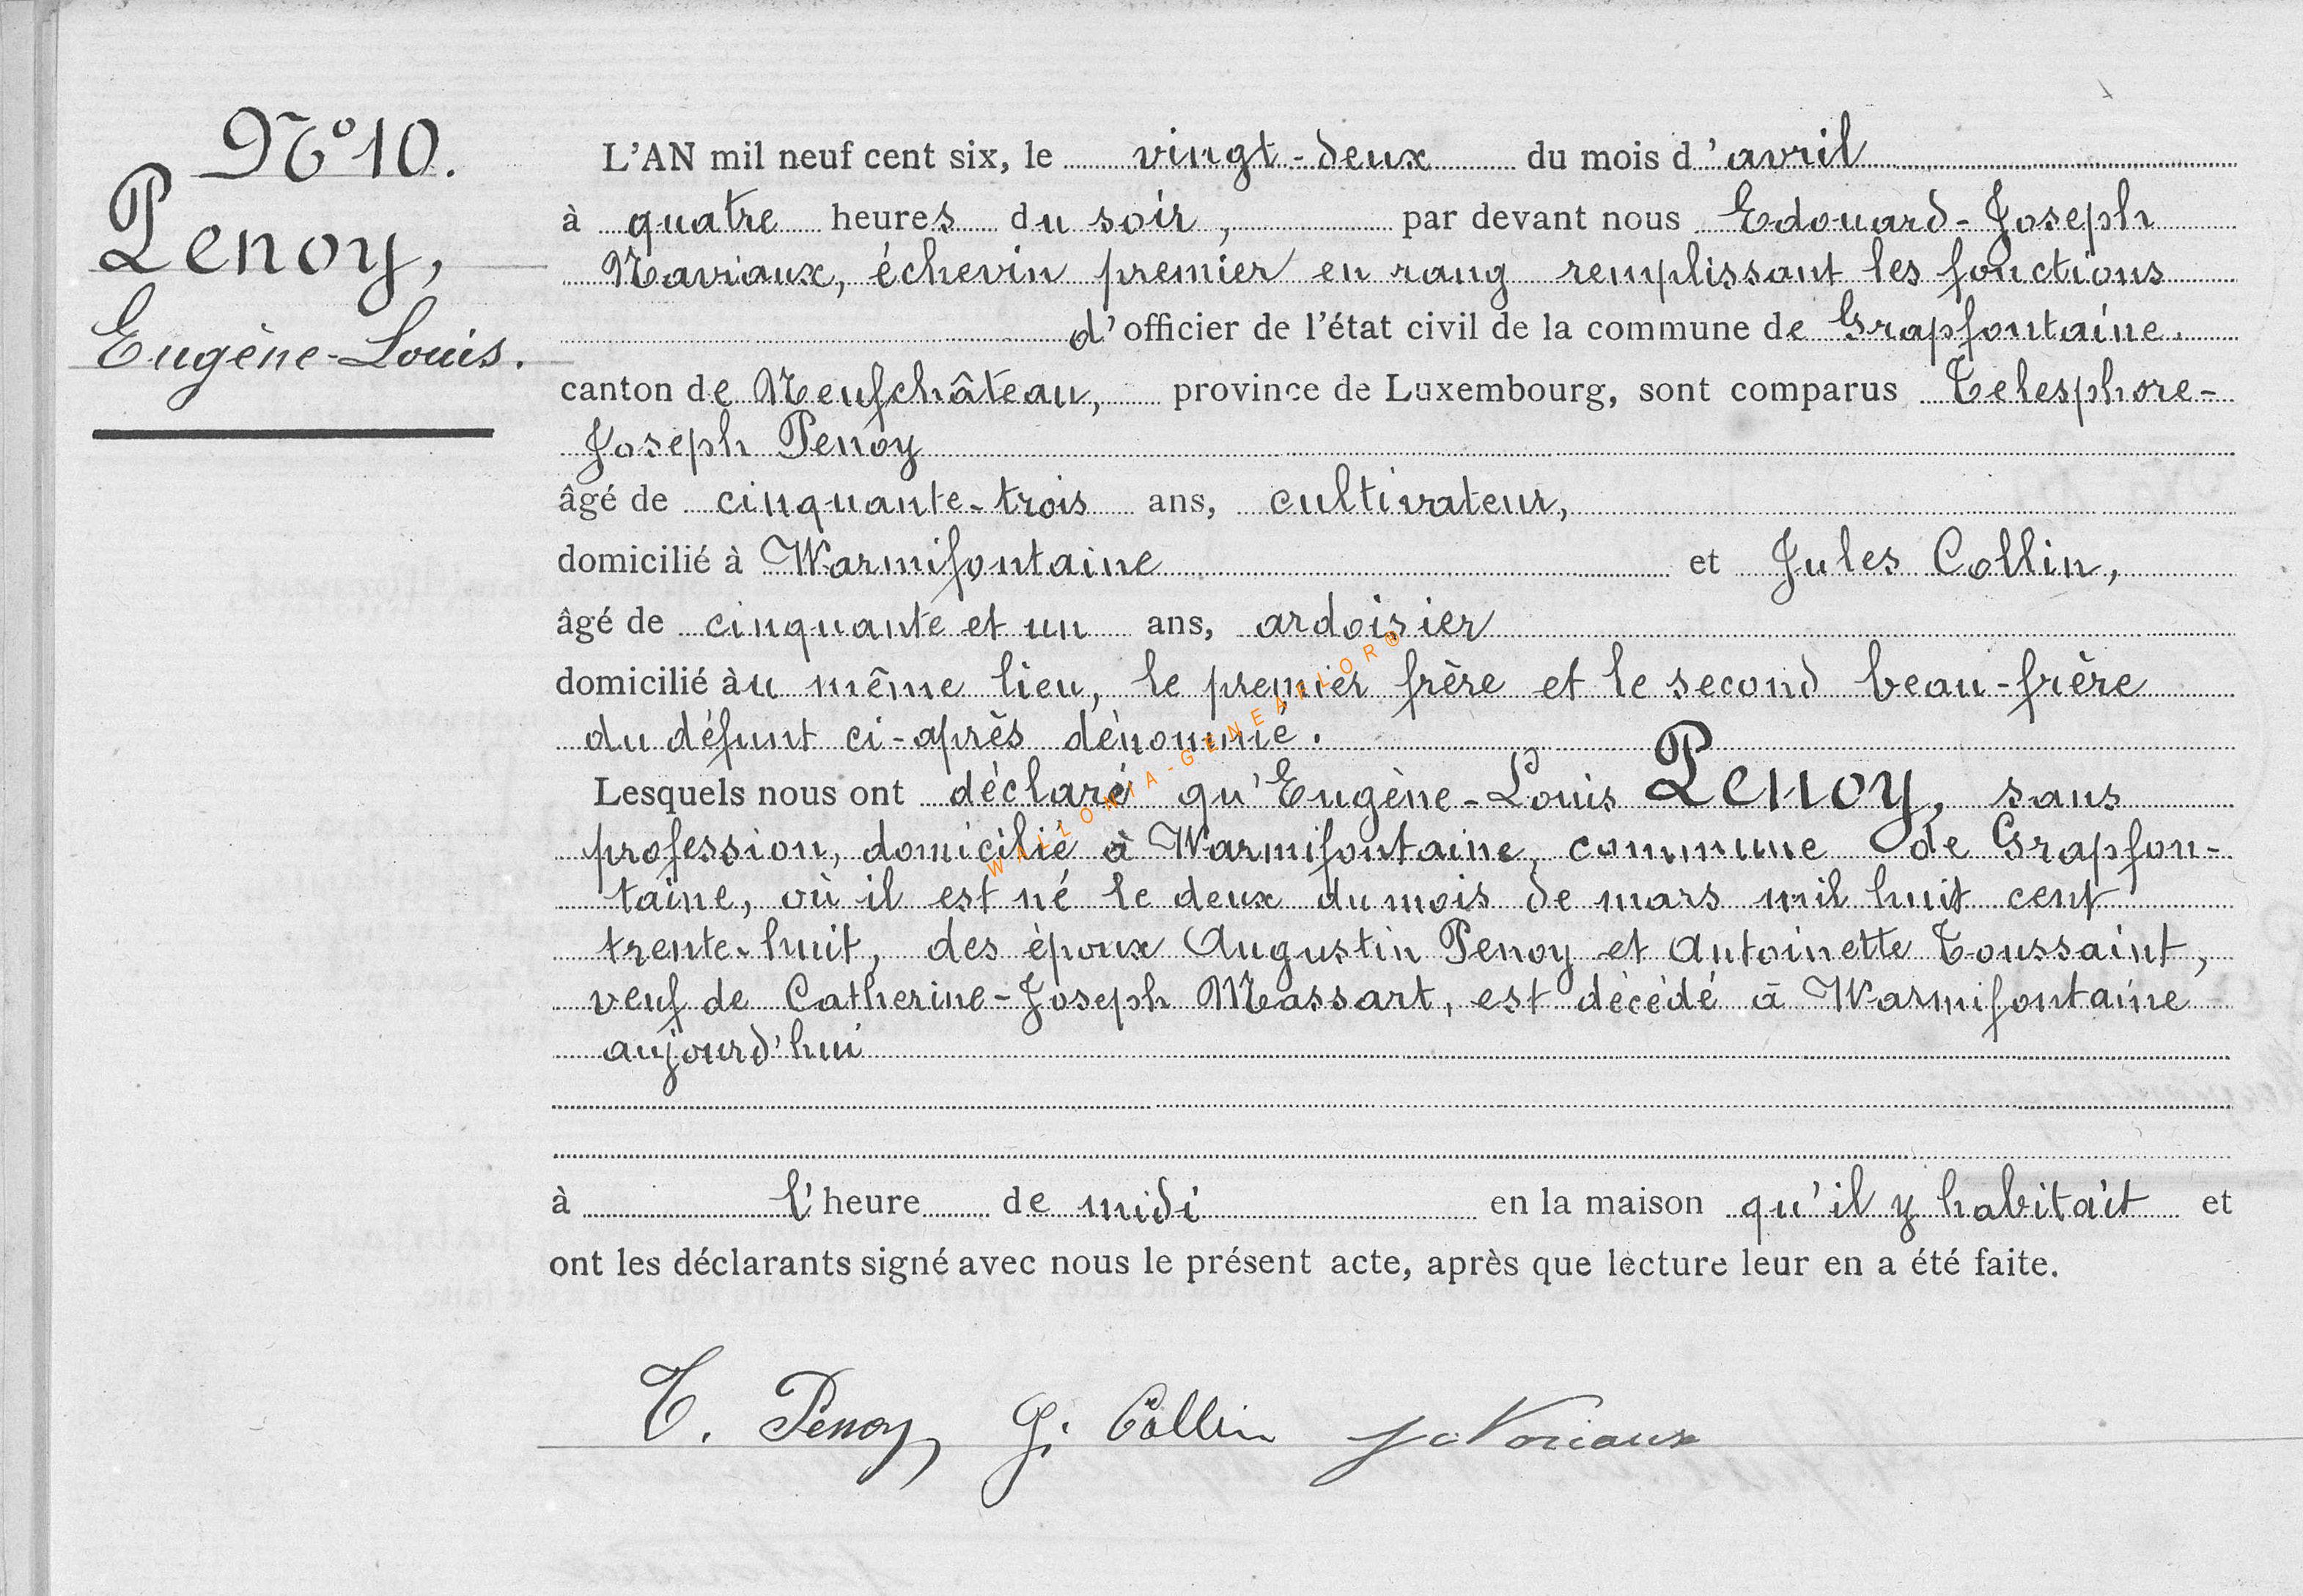 N° 10.
Penoy,
Eugène-Louis.
L'AN mil neuf cent six, le vingt-deux du mois d'avril
à quatre heures du soir, par devant nous Edouard-Joseph
Navriaux, échevin premier en rang remplissant les fonctions
d'officier de l'état civil de la commune de Grapfontaine.
canton de Neufchâteau, province de Luxembourg, sont comparus Telesphore-
Joseph Penoy
âgé de cinquante-trois ans, cultivateur,
domicilié à Warmifontaine et Jules Collin,
âgé de cinquante et un ans, ardoisier
domicilié àu même lieu, le premier frère et le second beau-frère
du défunt ci-après dénommé.
Lesquels nous ont déclaré qu'Eugène-Louis Penoy, sans
profession, domicilié à Warmifontaine, commune de Grapfon-
taine, où il est né le deux du mois de mars mil huit cent
trente-huit, des époux Augustin Penoy et Antoinette Toussaint,
veuf de Catherine-Joseph Massart, est décédé à Warmifontaine
aujourd'hui
à l'heure de midi en la maison qu'il y habitait et
ont les déclarants signé avec nous le présent acte, après que lecture leur en a été faite.
T. Penoy J. Collin
WALLONIA-GENEAFLOR©